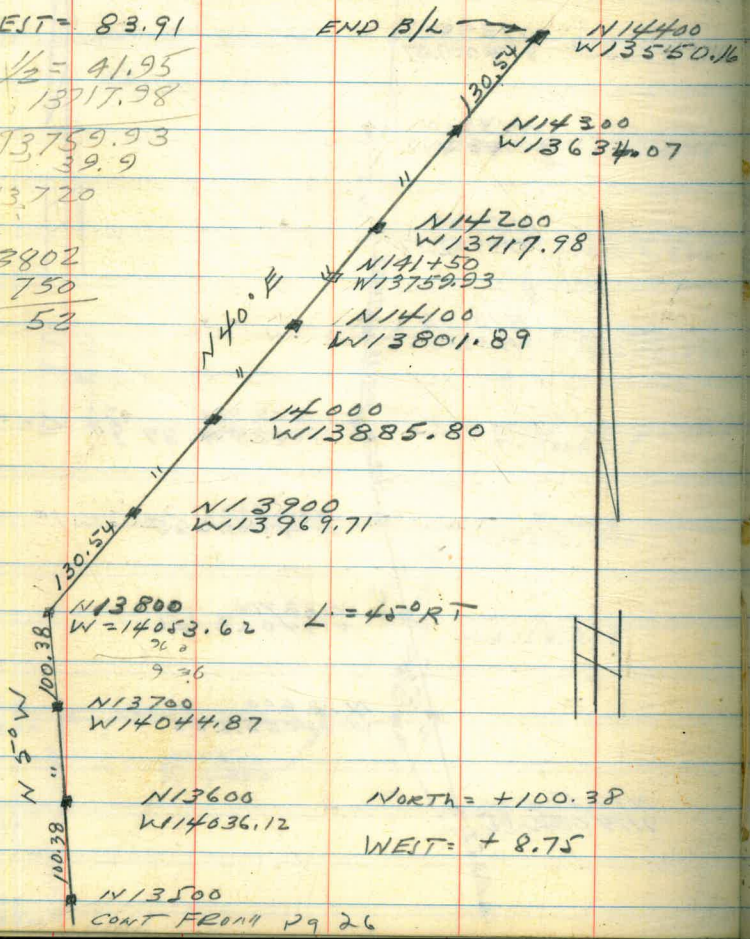 EST= 83.91
1/2 = 41.95
13717.98
13759.93
39.9
3,720
3802
750
52
END B/L
N14400
W13550.16
130.54
N14300
W13634.07
"
N14200
W13717.98
N141+50
W13759.93
N40°E
N14100
W13801.89
"
14000
W13885.80
"
N13900
W13969.71
130.54
N13800
W=14053.62
L = 45° RT
100.38
N13700
W14044.87
N 5° W
"
N13600
W14036.12
NORTH = +100.38
WEST = + 8.75
100.38
N13500
CONT FROM pg 26
N